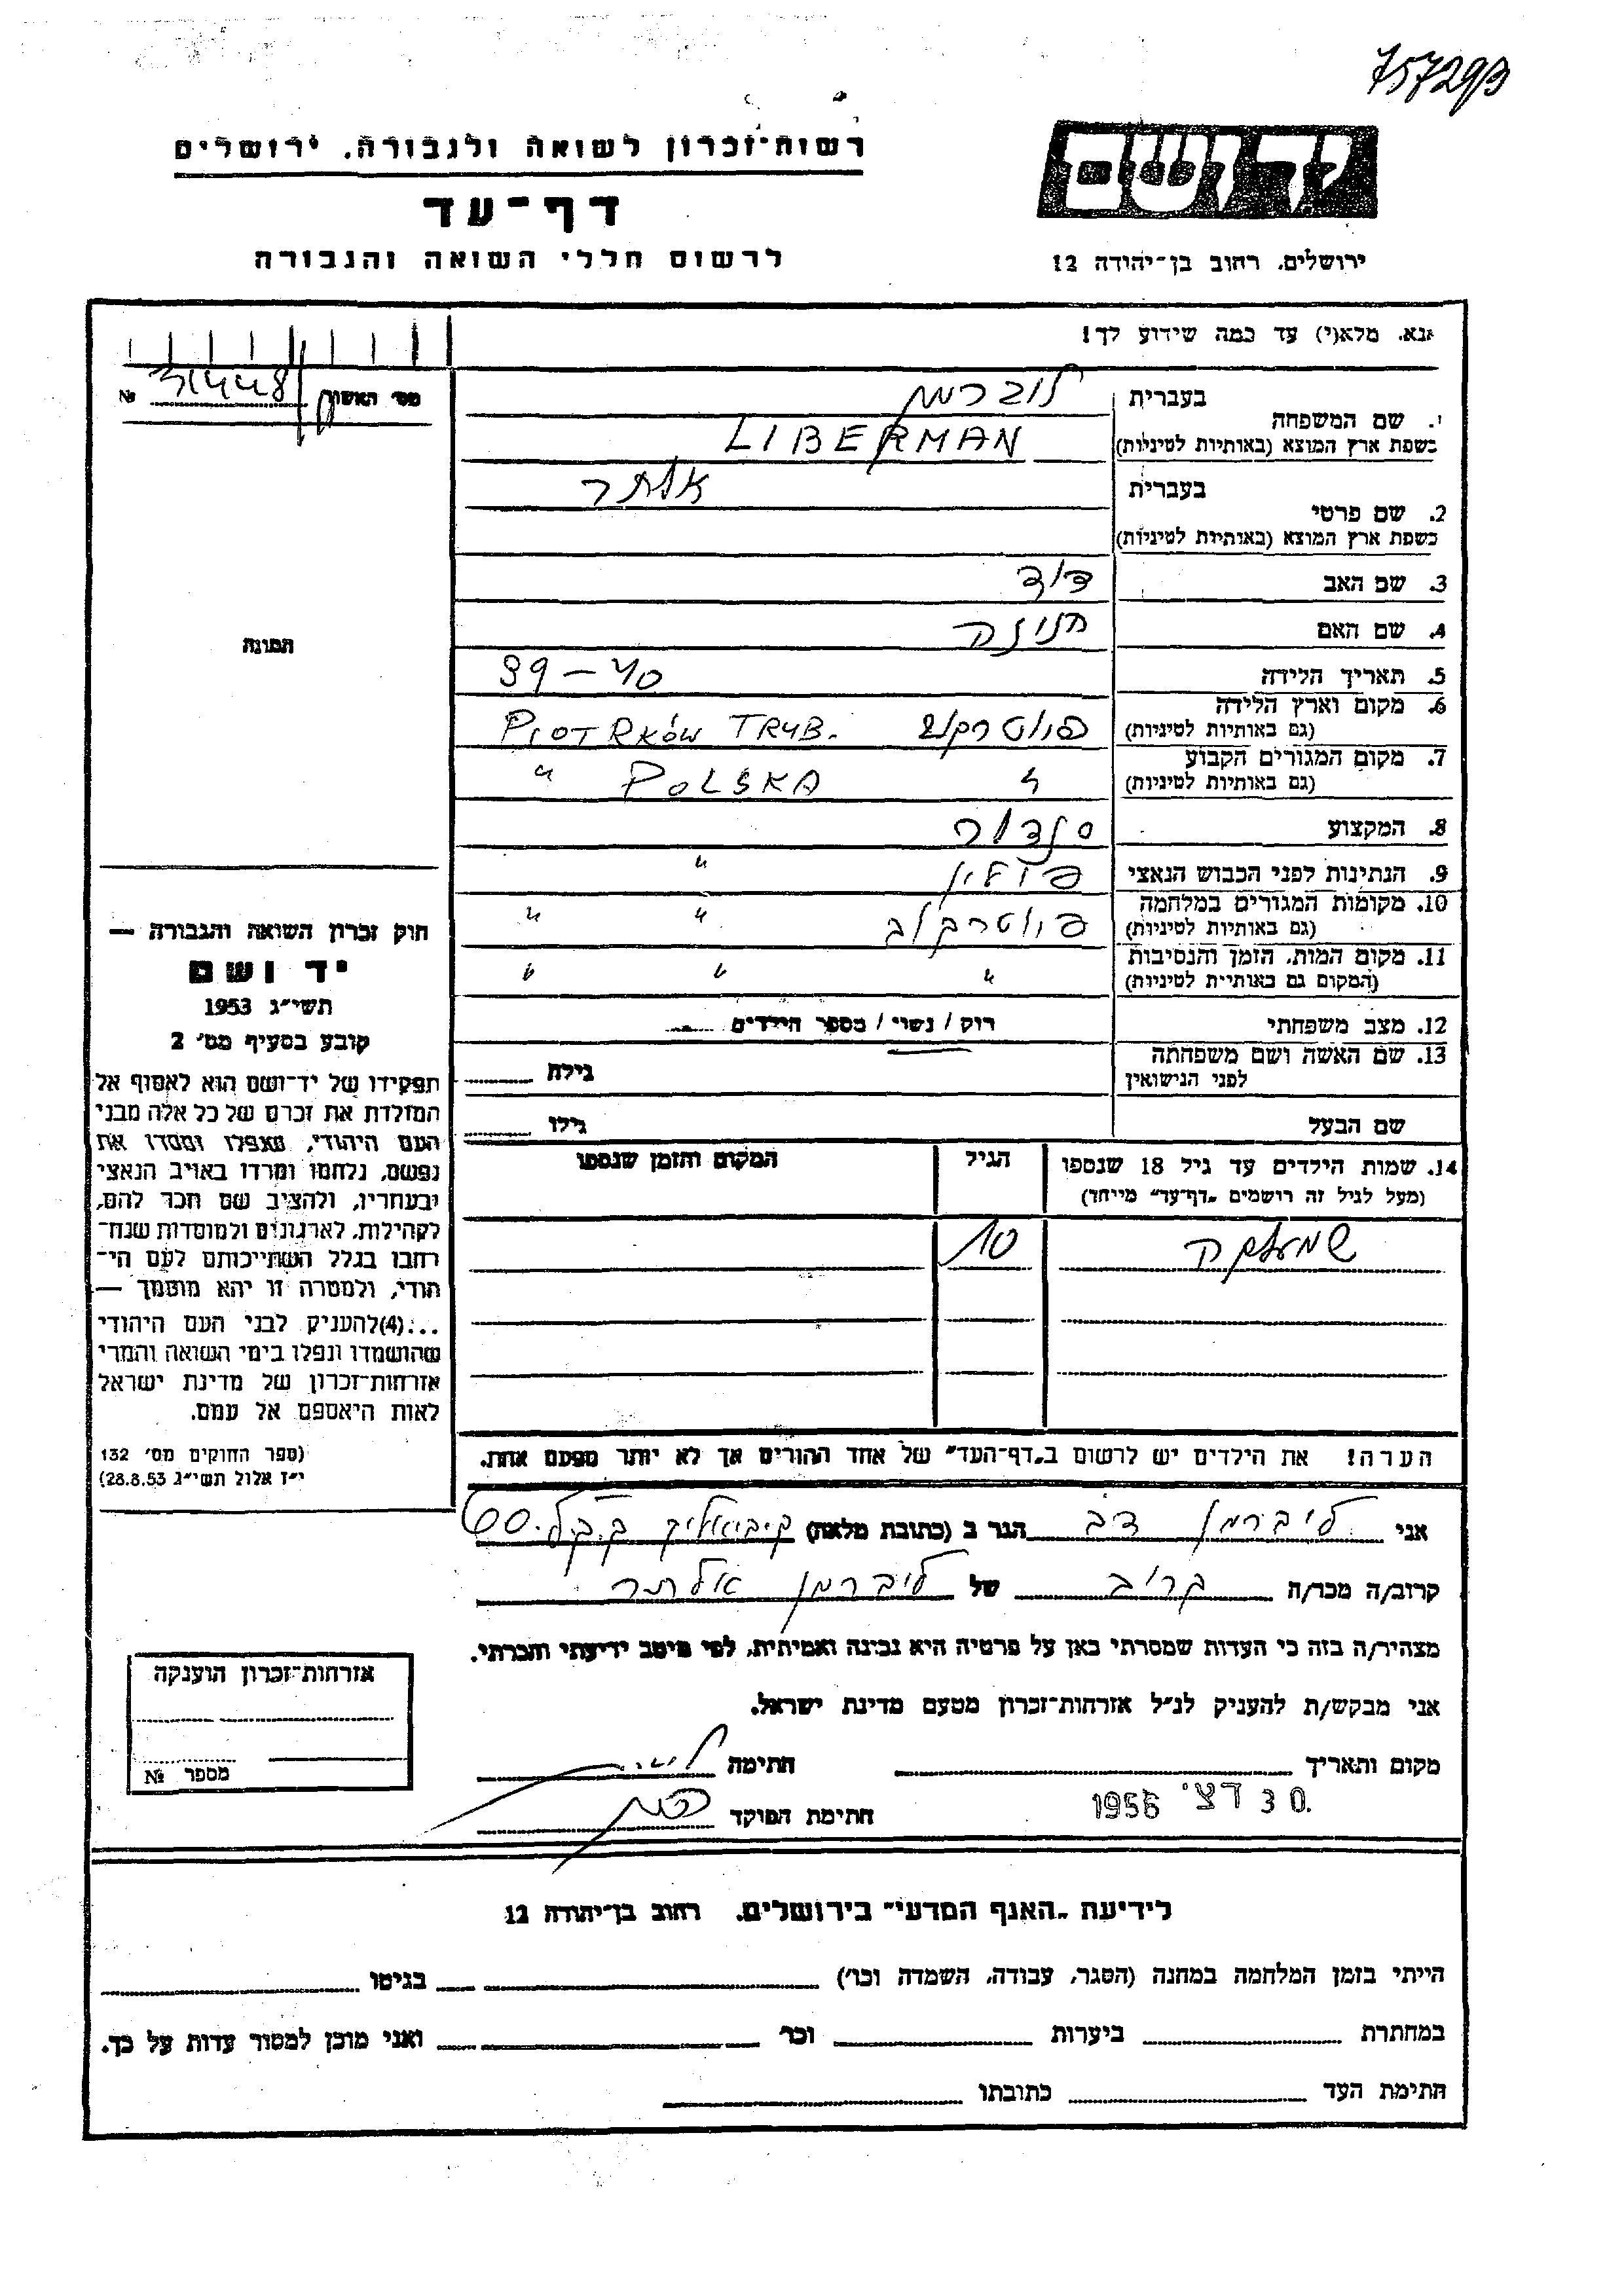 75729β
רשות־זכרון לשואה ולגבורה, ירושלים
דף־עד
לרשום חללי השואה והגבורה
ירושלים, רחוב בן־יהודה 12
אנא, מלא(י) עד כמה שידוע לך!
מס׳ האשון № 31448
1. שם המשפחה בעברית ליברמן
כשפת ארץ המוצא (באותיות לטיניות) LIBERMAN
2. שם פרטי בעברית אלתר
כשפת ארץ המוצא (באותיות לטיניות)
3. שם האב דוד
4. שם האם
5. תאריך הלידה 39 – 40
6. מקום וארץ הלידה (גם באותיות לטיניות) פיוטרקוב PIOTRKÓW TRYB.
7. מקום המגורים הקבוע (גם באותיות לטיניות) " POLSKA "
8. המקצוע סנדלר
9. הנתינות לפני הכבוש הנאצי פולין "
10. מקומות המגורים במלחמה (גם באותיות לטיניות) פיוטרקוב " "
11. מקום המות, הזמן והנסיבות (המקום גם באותיית לטיניות) " " "
12. מצב משפחתי רוק / נשוי / מספר הילדים
13. שם האשה ושם משפחתה לפני הנישואין גילה
שם הבעל גילו
14. שמות הילדים עד גיל 18 שנספו (מעל לגיל זה רושמים „דף־עד" מייחד) הגיל המקום והזמן שנספו
10
הערה! את הילדים יש לרשום ב„דף־העד" של אחד ההורים אך לא יותר מפעם אחת.
התמונה
חוק זכרון השואה והגבורה —
יד ושם
תשי״ג 1953
קובע בסעיף מס׳ 2
תפקידו של יד־ושם הוא לאסוף אל
המולדת את זכרם של כל אלה מבני
העם היהודי, שנפלו ומסרו את
נפשם, נלחמו ומרדו באויב הנאצי
ובעוזריו, ולהציב שם וזכר להם,
לקהילות, לארגונים ולמוסדות שנח־
רחבו בגלל השתייכותם לעם הי־
הודי, ולמטרה זו יהא מוסמך —
...(4) להעניק לבני העם היהודי
שהושמדו ונפלו בימי השואה והמרי
אזרחות־זכרון של מדינת ישראל
לאות היאספם אל עמם.
(ספר החוקים מס׳ 132
י״ז אלול תשי״ג 28.8.53)
אני ליברמן דב הגר ב (כתובת מלאה) ק.ביאליק ק.ק.ל. 60
קרוב/ה מכר/ה קרוב של ליברמן אלתר
מצהיר/ה בזה כי העדות שמסרתי כאן על פרטיה היא נכונה ואמיתית, לפי מיטב ידיעתי והכרתי.
אני מבקש/ת להעניק לנ״ל אזרחות־זכרון מטעם מדינת ישראל.
מקום ותאריך חתימה
30 דצ׳ 1956
חתימת הפוקד
אזרחות־זכרון הוענקה
מספר №
לידיעת „האגף המדעי" בירושלים, רחוב בן־יהודה 12
הייתי בזמן המלחמה במחנה (הסגר, עבודה, השמדה וכו׳) בגיטו
במחתרת ביערות וכו׳ ואני מוכן למסור עדות על כך.
חתימת העד כתובתו